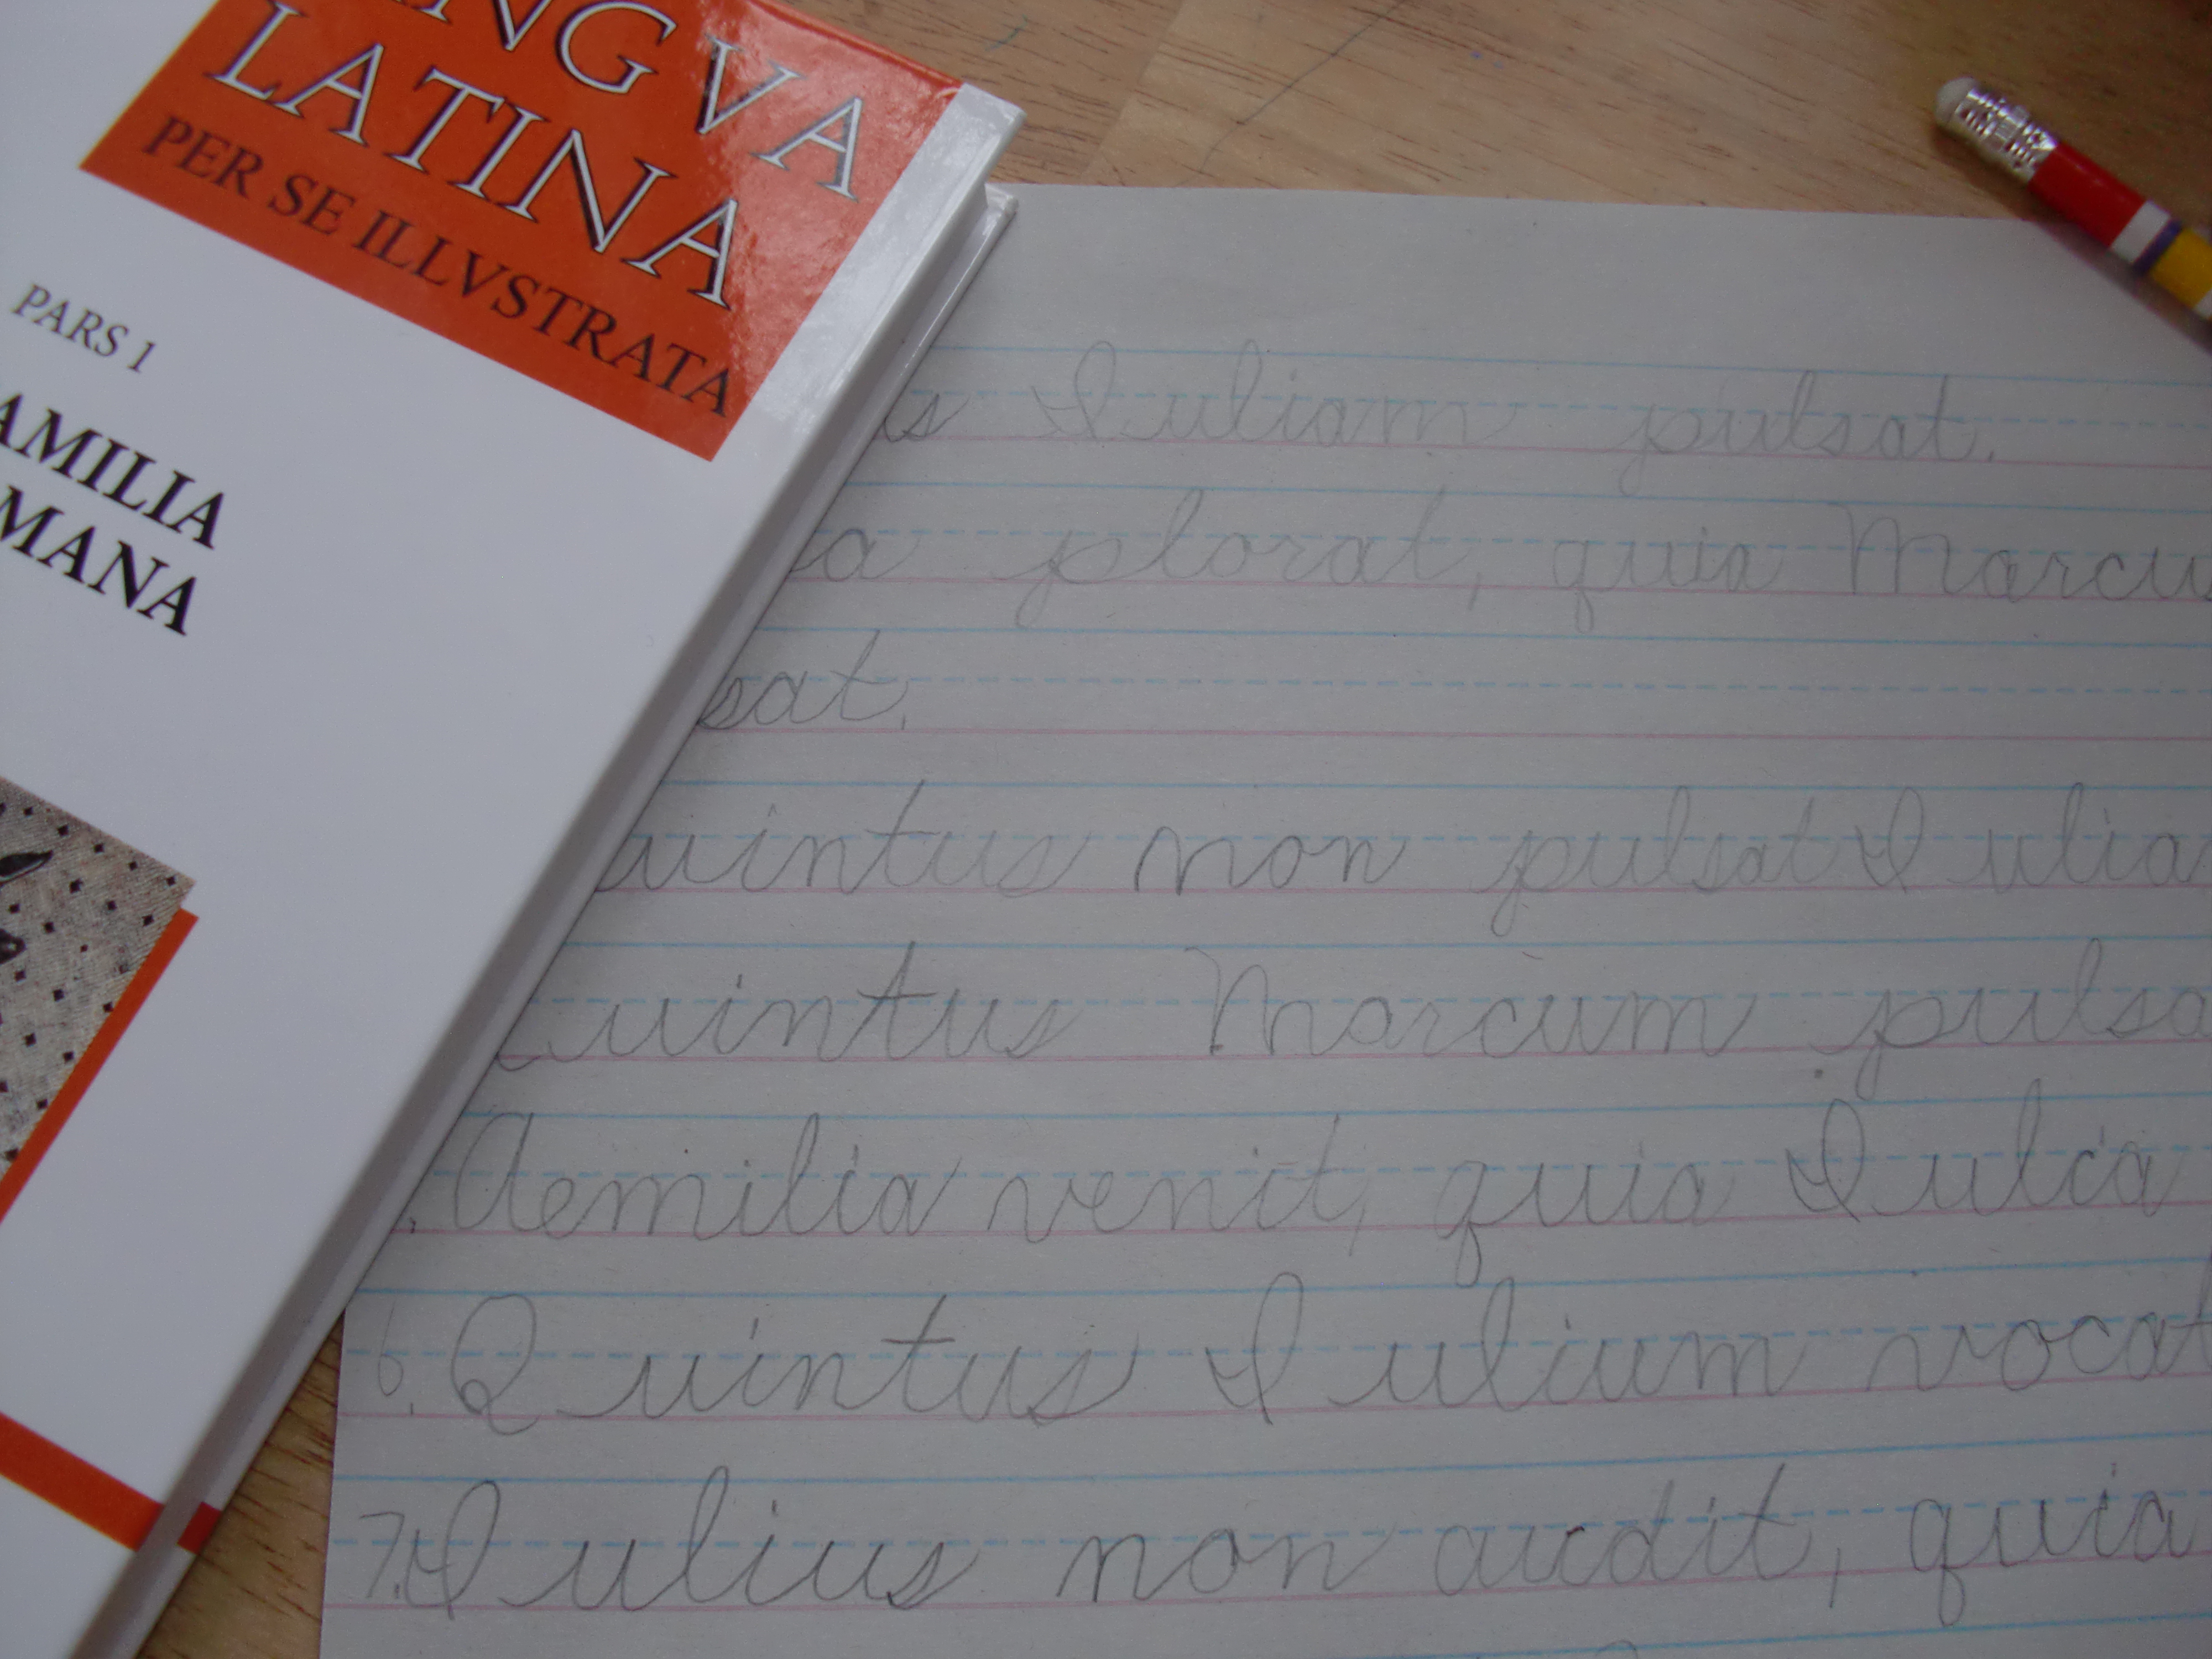 LINGVA
LATINA
PER SE ILLVSTRATA
PARS 1
AMILIA
MANA
s Iuliam pulsat.
a plorat, quia Marcu
sat.
uintus non pulsat Iulia
uintus Marcum pulsa
Aemilia venit, quia Iulia
6. Quintus Iulium vocat
7. Iulius non audit, quia